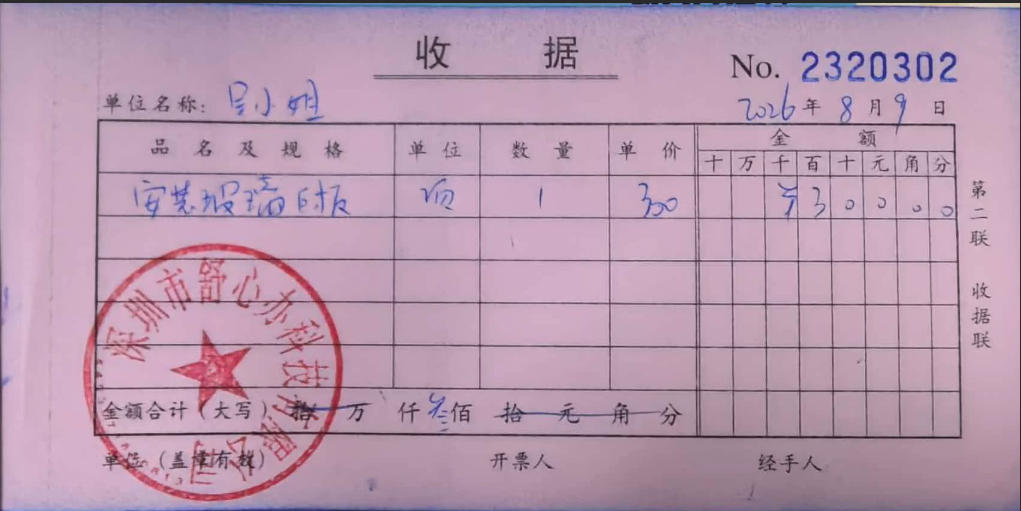 收 据
No. 2320302
单位名称: 吴小姐
2026年8月9日
品名及规格 单位 数量 单价 金额
十万千百十元角分
安装玻璃白板 项 1 300 ¥30000
金额合计(大写)拾万仟叁佰拾元角分
单位(盖章有效) 开票人 经手人
第二联 收据联
深圳市舒心办科技有限公司